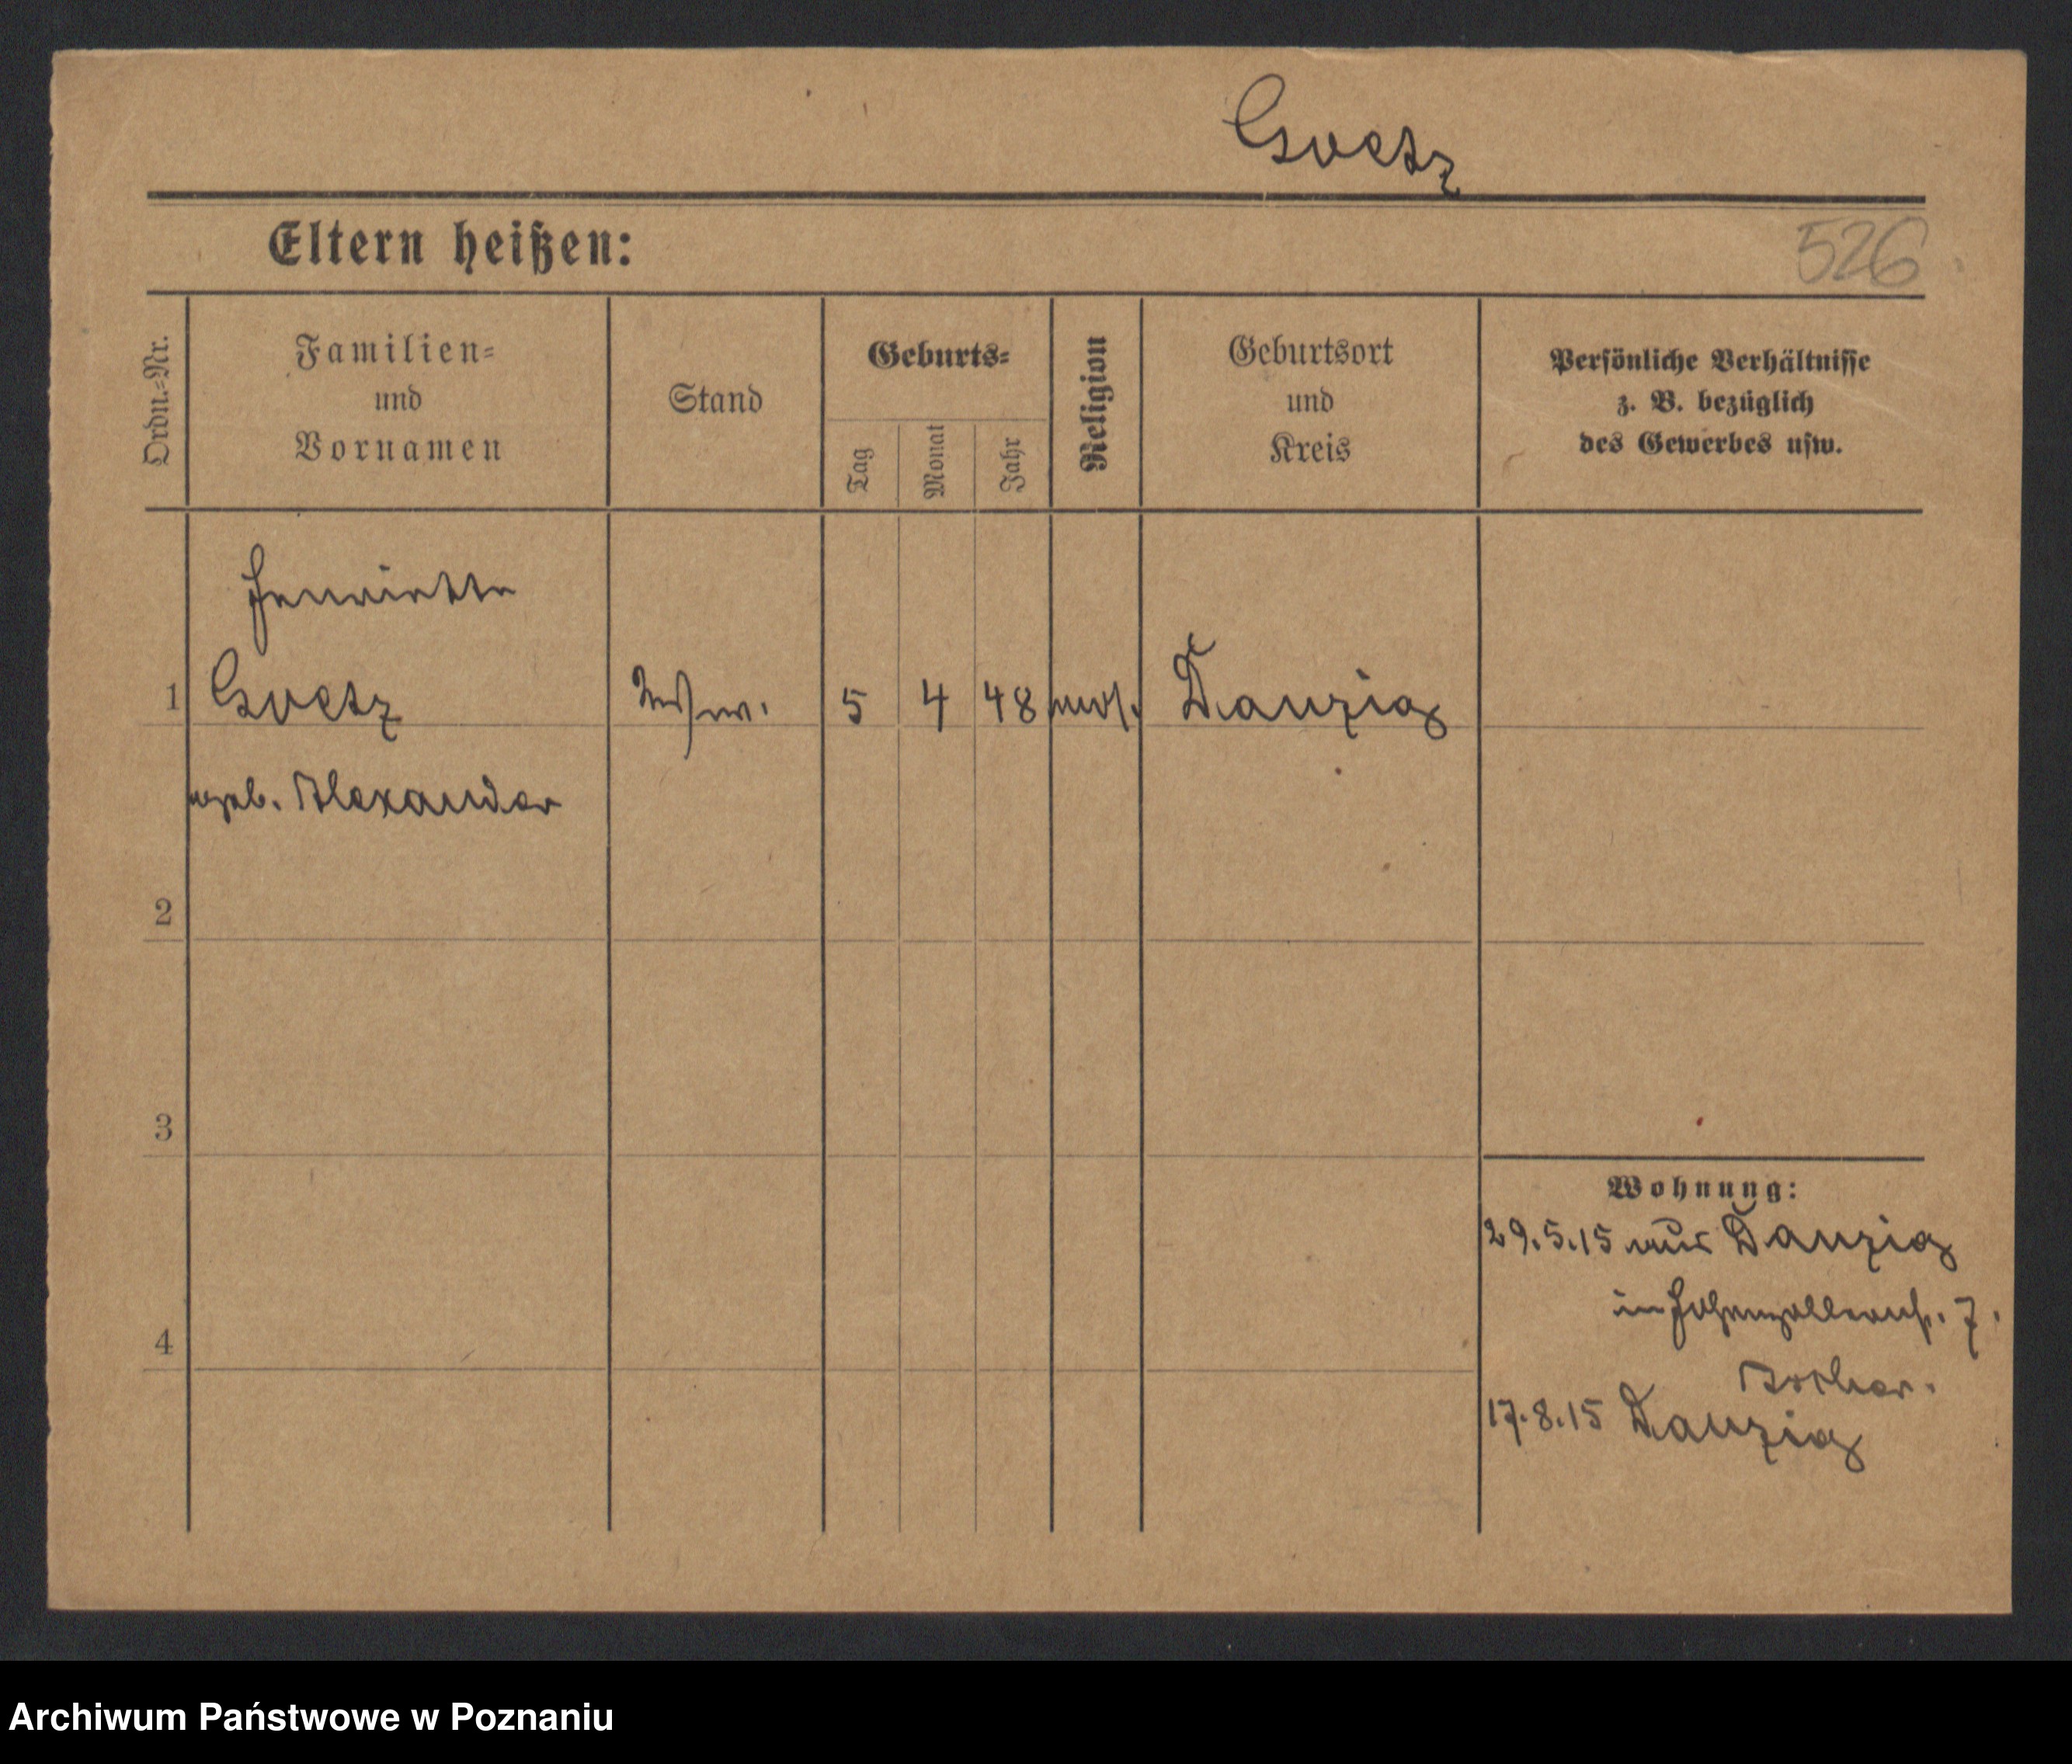 Goetz
Eltern heißen:
526
Ordn.=Nr.
Familien=
und
Vornamen
Stand
Geburts=
Tag
Monat
Jahr
Religion
Geburtsort
und
Kreis
Persönliche Verhältnisse
z. B. bezüglich
des Gewerbes usw.
Henriette
1 Goetz Ww. 5 4 48 mos. Danzig
geb. Alexander
2
3
4
Wohnung:
29.5.15 aus Danzig
in Hohenzollernst. 7.
17.8.15 Danzig
Archiwum Państwowe w Poznaniu